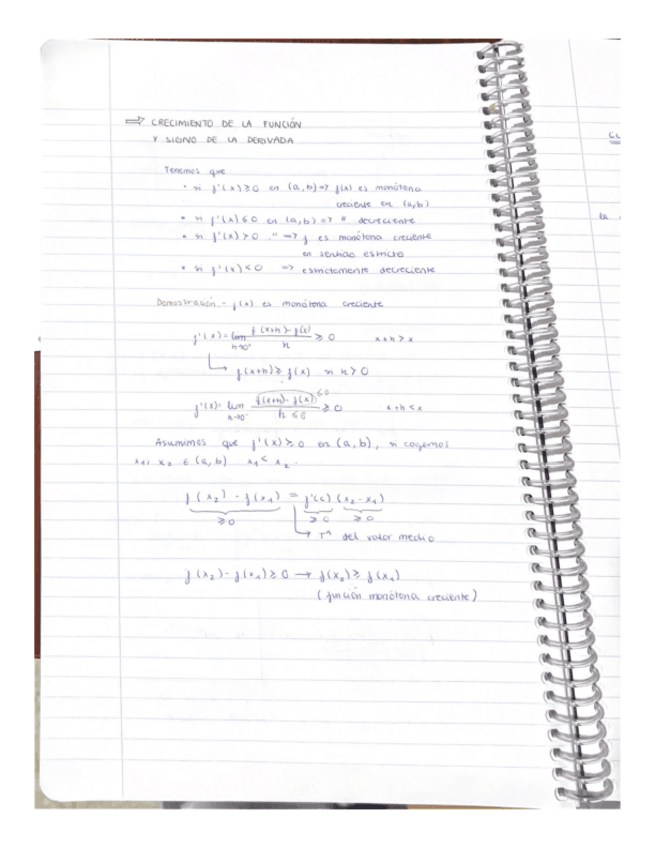 ⇒ CRECIMIENTO DE LA FUNCIÓN
Y SIGNO DE LA DERIVADA
Tenemos que
• si f'(x) ≥ 0 en (a,b) => f(x) es monótona
creciente en (a,b)
• si f'(x) ≤ 0 en (a,b) => " decreciente
• si f'(x) > 0 " => f es monótona creciente
en sentido estricto
• si f'(x) < 0 => estrictamente decreciente
Demostración.- f(x) es monótona creciente
f'(x) = lim h→0⁺ (f(x+h) - f(x))/h ≥ 0 x+h > x
↳ f(x+h) ≥ f(x) si h > 0
f'(x) = lim h→0⁻ (f(x+h) - f(x))/h ≥ 0 x+h < x
≤0
≤0
Asumimos que f'(x) ≥ 0 en (a,b), si cogemos
x₁, x₂ ∈ (a,b) x₁ < x₂.
f(x₂) - f(x₁) = f'(c) (x₂ - x₁)
≥0 ≥0 ≥0
↳ Tª del valor medio
f(x₂) - f(x₁) ≥ 0 → f(x₂) ≥ f(x₁)
(función monótona creciente)